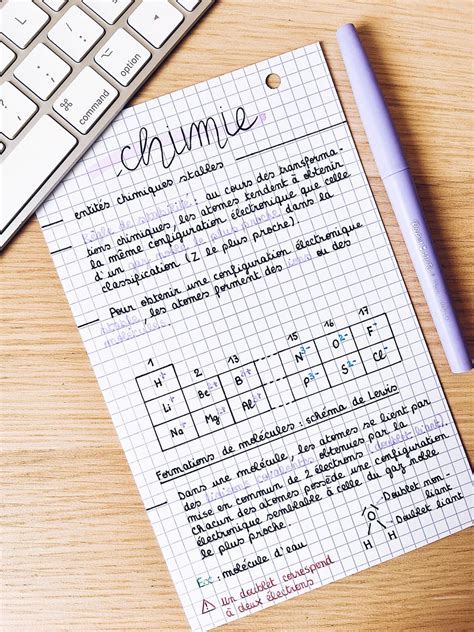 control
option
command
chimie
entités chimiques stables
Règle de stabilité : au cours des transforma-
tions chimiques, les atomes tendent à obtenir
la même configuration électronique que celle
d'un gaz noble le plus proche dans la
classification (Z le plus proche)
Pour obtenir une configuration électronique
stable, les atomes forment des ions ou des
molécules.
1 2 13 15 16 17
H+ N3- O2- F-
Li+ Be2+ B3+ P3- S2- Cl-
Na+ Mg2+ Al3+
Formations de molécules : schéma de Lewis
Dans une molécule, les atomes se lient par
des liaisons covalentes obtenues par la
mise en commun de 2 électrons (doublet liant).
chacun des atomes possède une configuration
électronique semblable à celle du gaz noble
le plus proche.
Doublet non-
liant
Ex : molécule d'eau
O
Doublet liant
H H
Un doublet correspond
à deux électrons